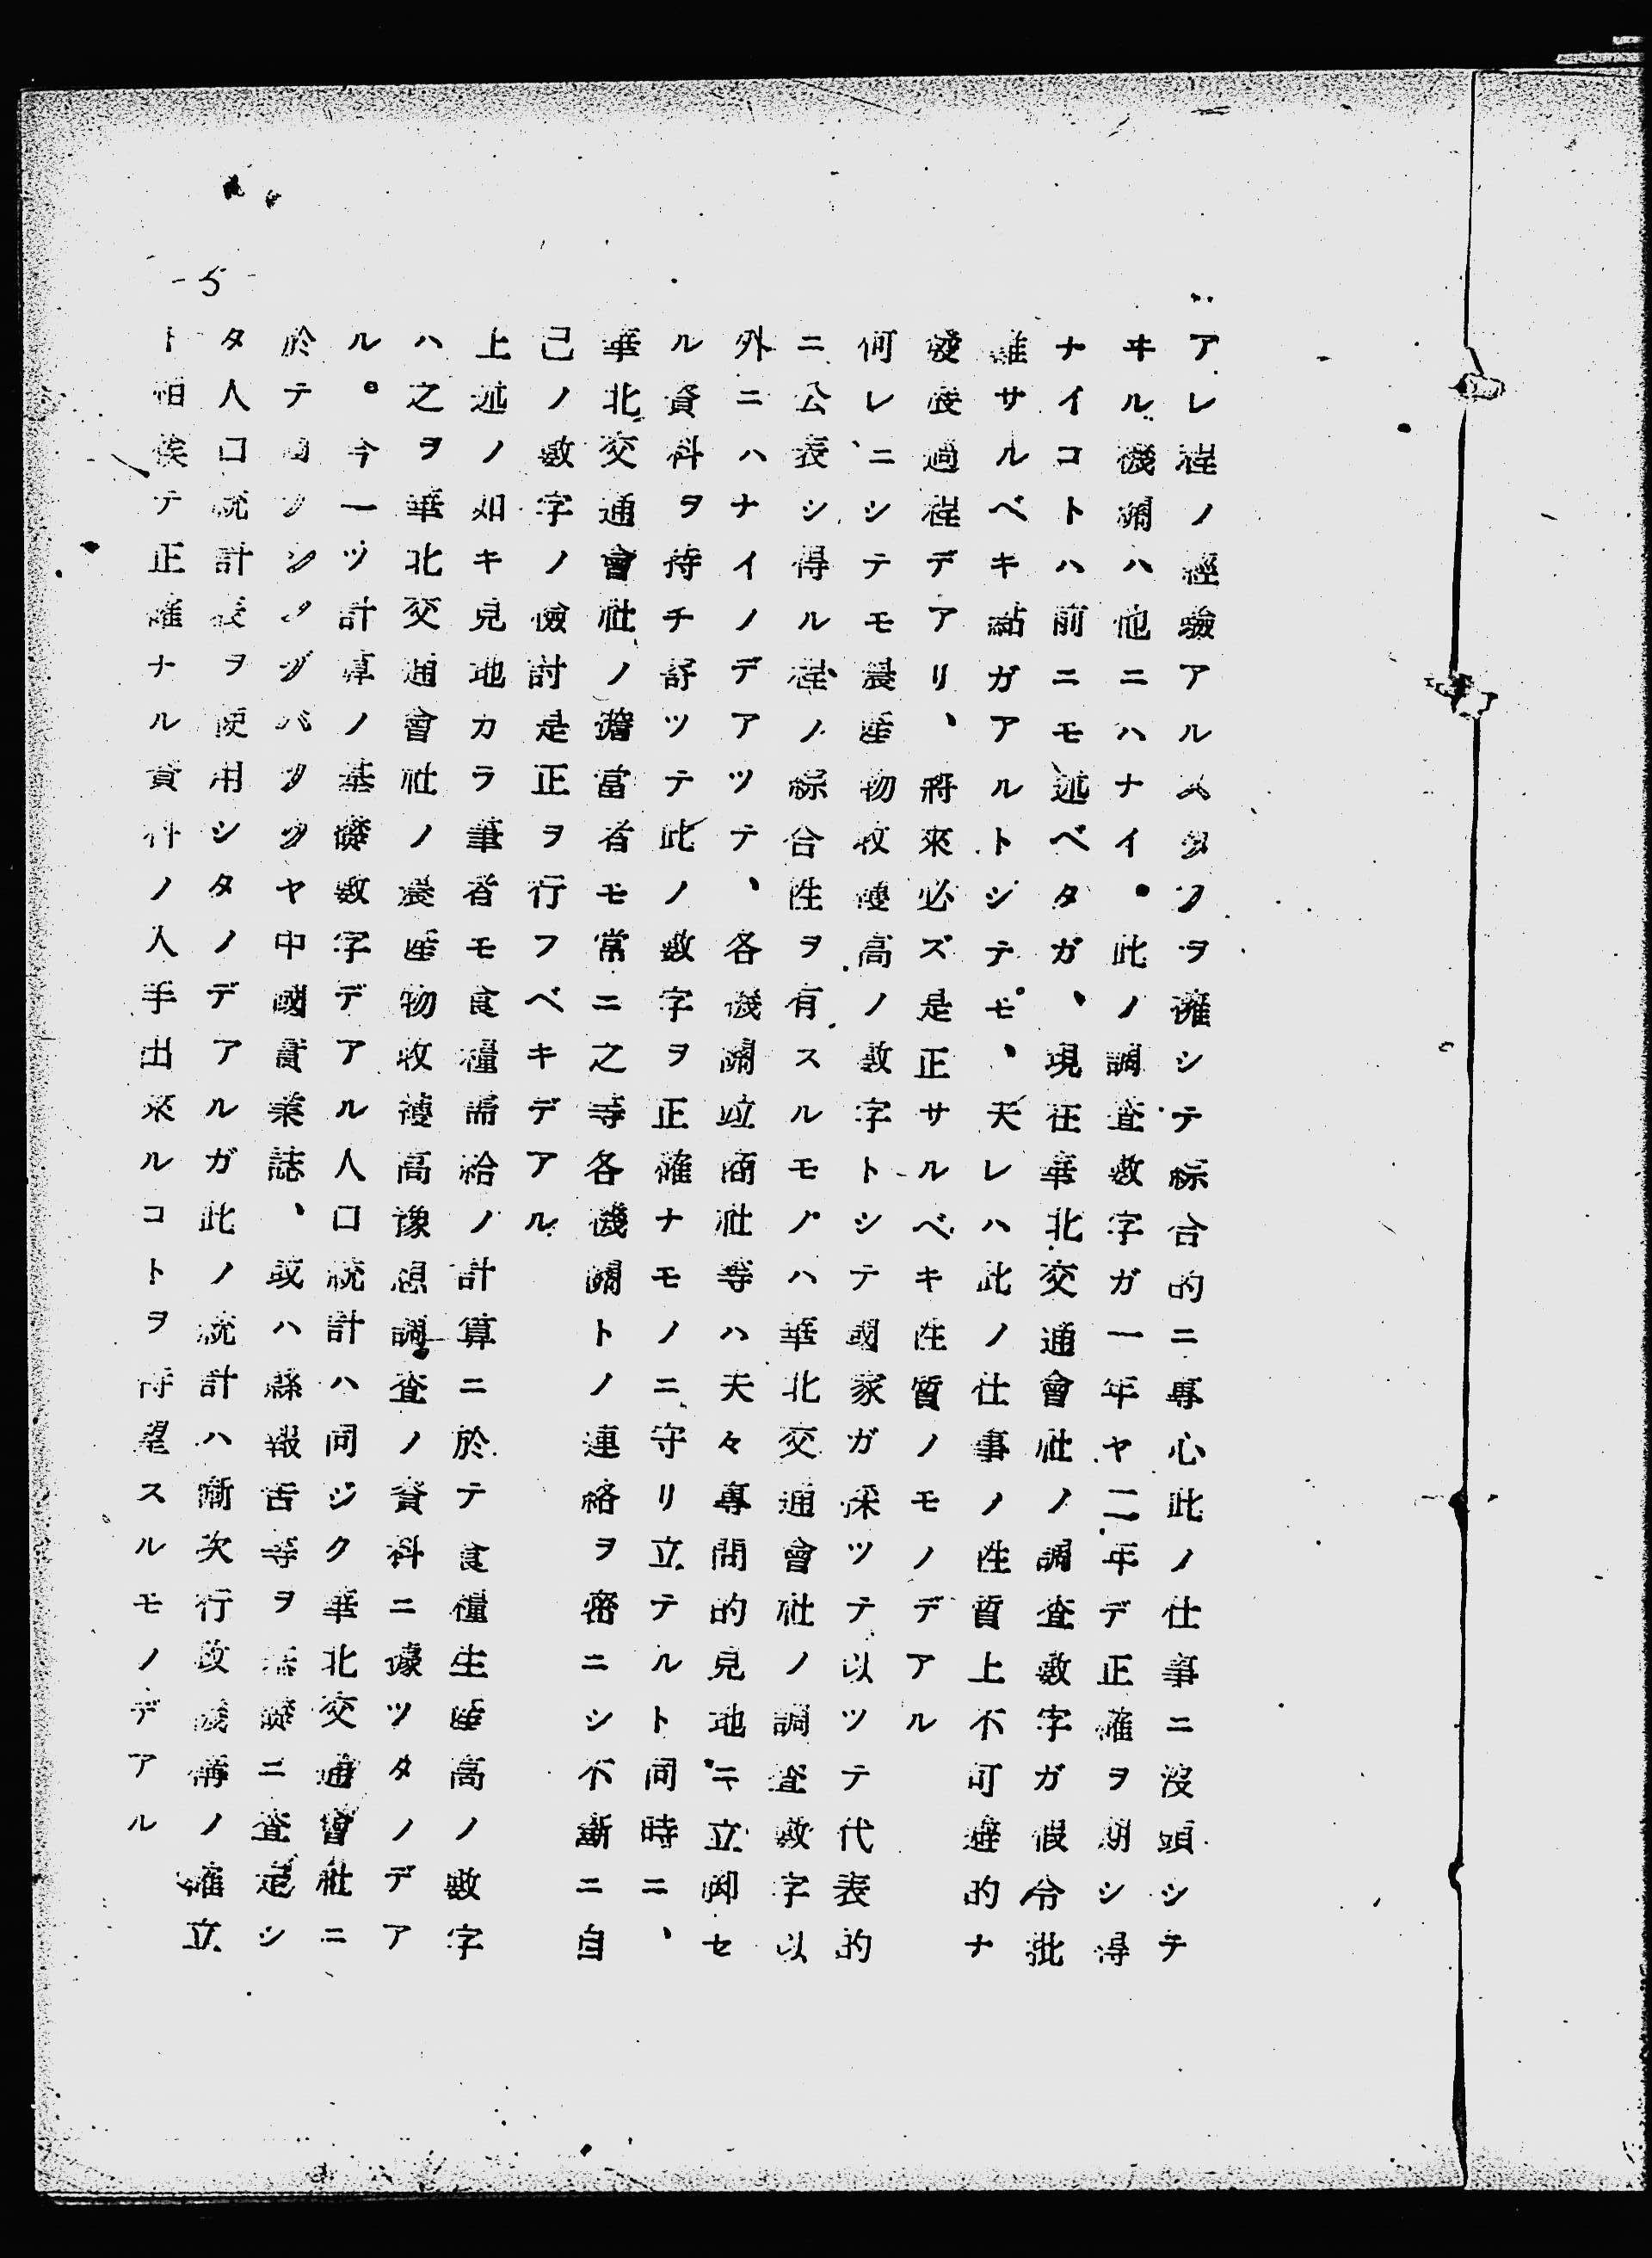 アレ程ノ經驗アルスタフヲ擁シテ綜合的ニ專心此ノ仕事ニ沒頭シテ
ヰル機關ハ他ニハナイ。此ノ調査數字ガ一年ヤ二年デ正確ヲ期シ得
ナイコトハ前ニモ述ベタガ、現在華北交通會社ノ調査數字ガ假令批
難サルベキ點ガアルトシテモ、夫レハ此ノ仕事ノ性質上不可避的ナ
發展過程デアリ、將來必ズ是正サルベキ性質ノモノデアル
何レニシテモ農産物收穫高ノ數字トシテ國家ガ採ツテ以ツテ代表的
ニ公表シ得ル程ノ綜合性ヲ有スルモノハ華北交通會社ノ調査數字以
外ニハナイノデアツテ、各機關竝商社等ハ夫々專問的見地ニ立脚セ
ル資料ヲ待チ寄ツテ此ノ數字ヲ正確ナモノニ守リ立テルト同時ニ、
華北交通會社ノ擔當者モ常ニ之等各機關トノ連絡ヲ密ニシ不斷ニ自
己ノ數字ノ檢討是正ヲ行フベキデアル
上述ノ如キ見地カラ筆者モ食糧需給ノ計算ニ於テ食糧生産高ノ數字
ハ之ヲ華北交通會社ノ農産物收穫高豫想調査ノ資料ニ據ツタノデア
ル。今一ツ計算ノ基礎數字デアル人口統計ハ同ジク華北交通會社ニ
於テヤ中國實業誌、或ハ縣報告等ヲ基礎ニ査定シ
タ人口統計表ヲ使用シタノデアルガ此ノ統計ハ漸次行政機構ノ確立
ト相俟テ正確ナル資料ノ入手出來ルコトヲ待望スルモノデアル
-5-